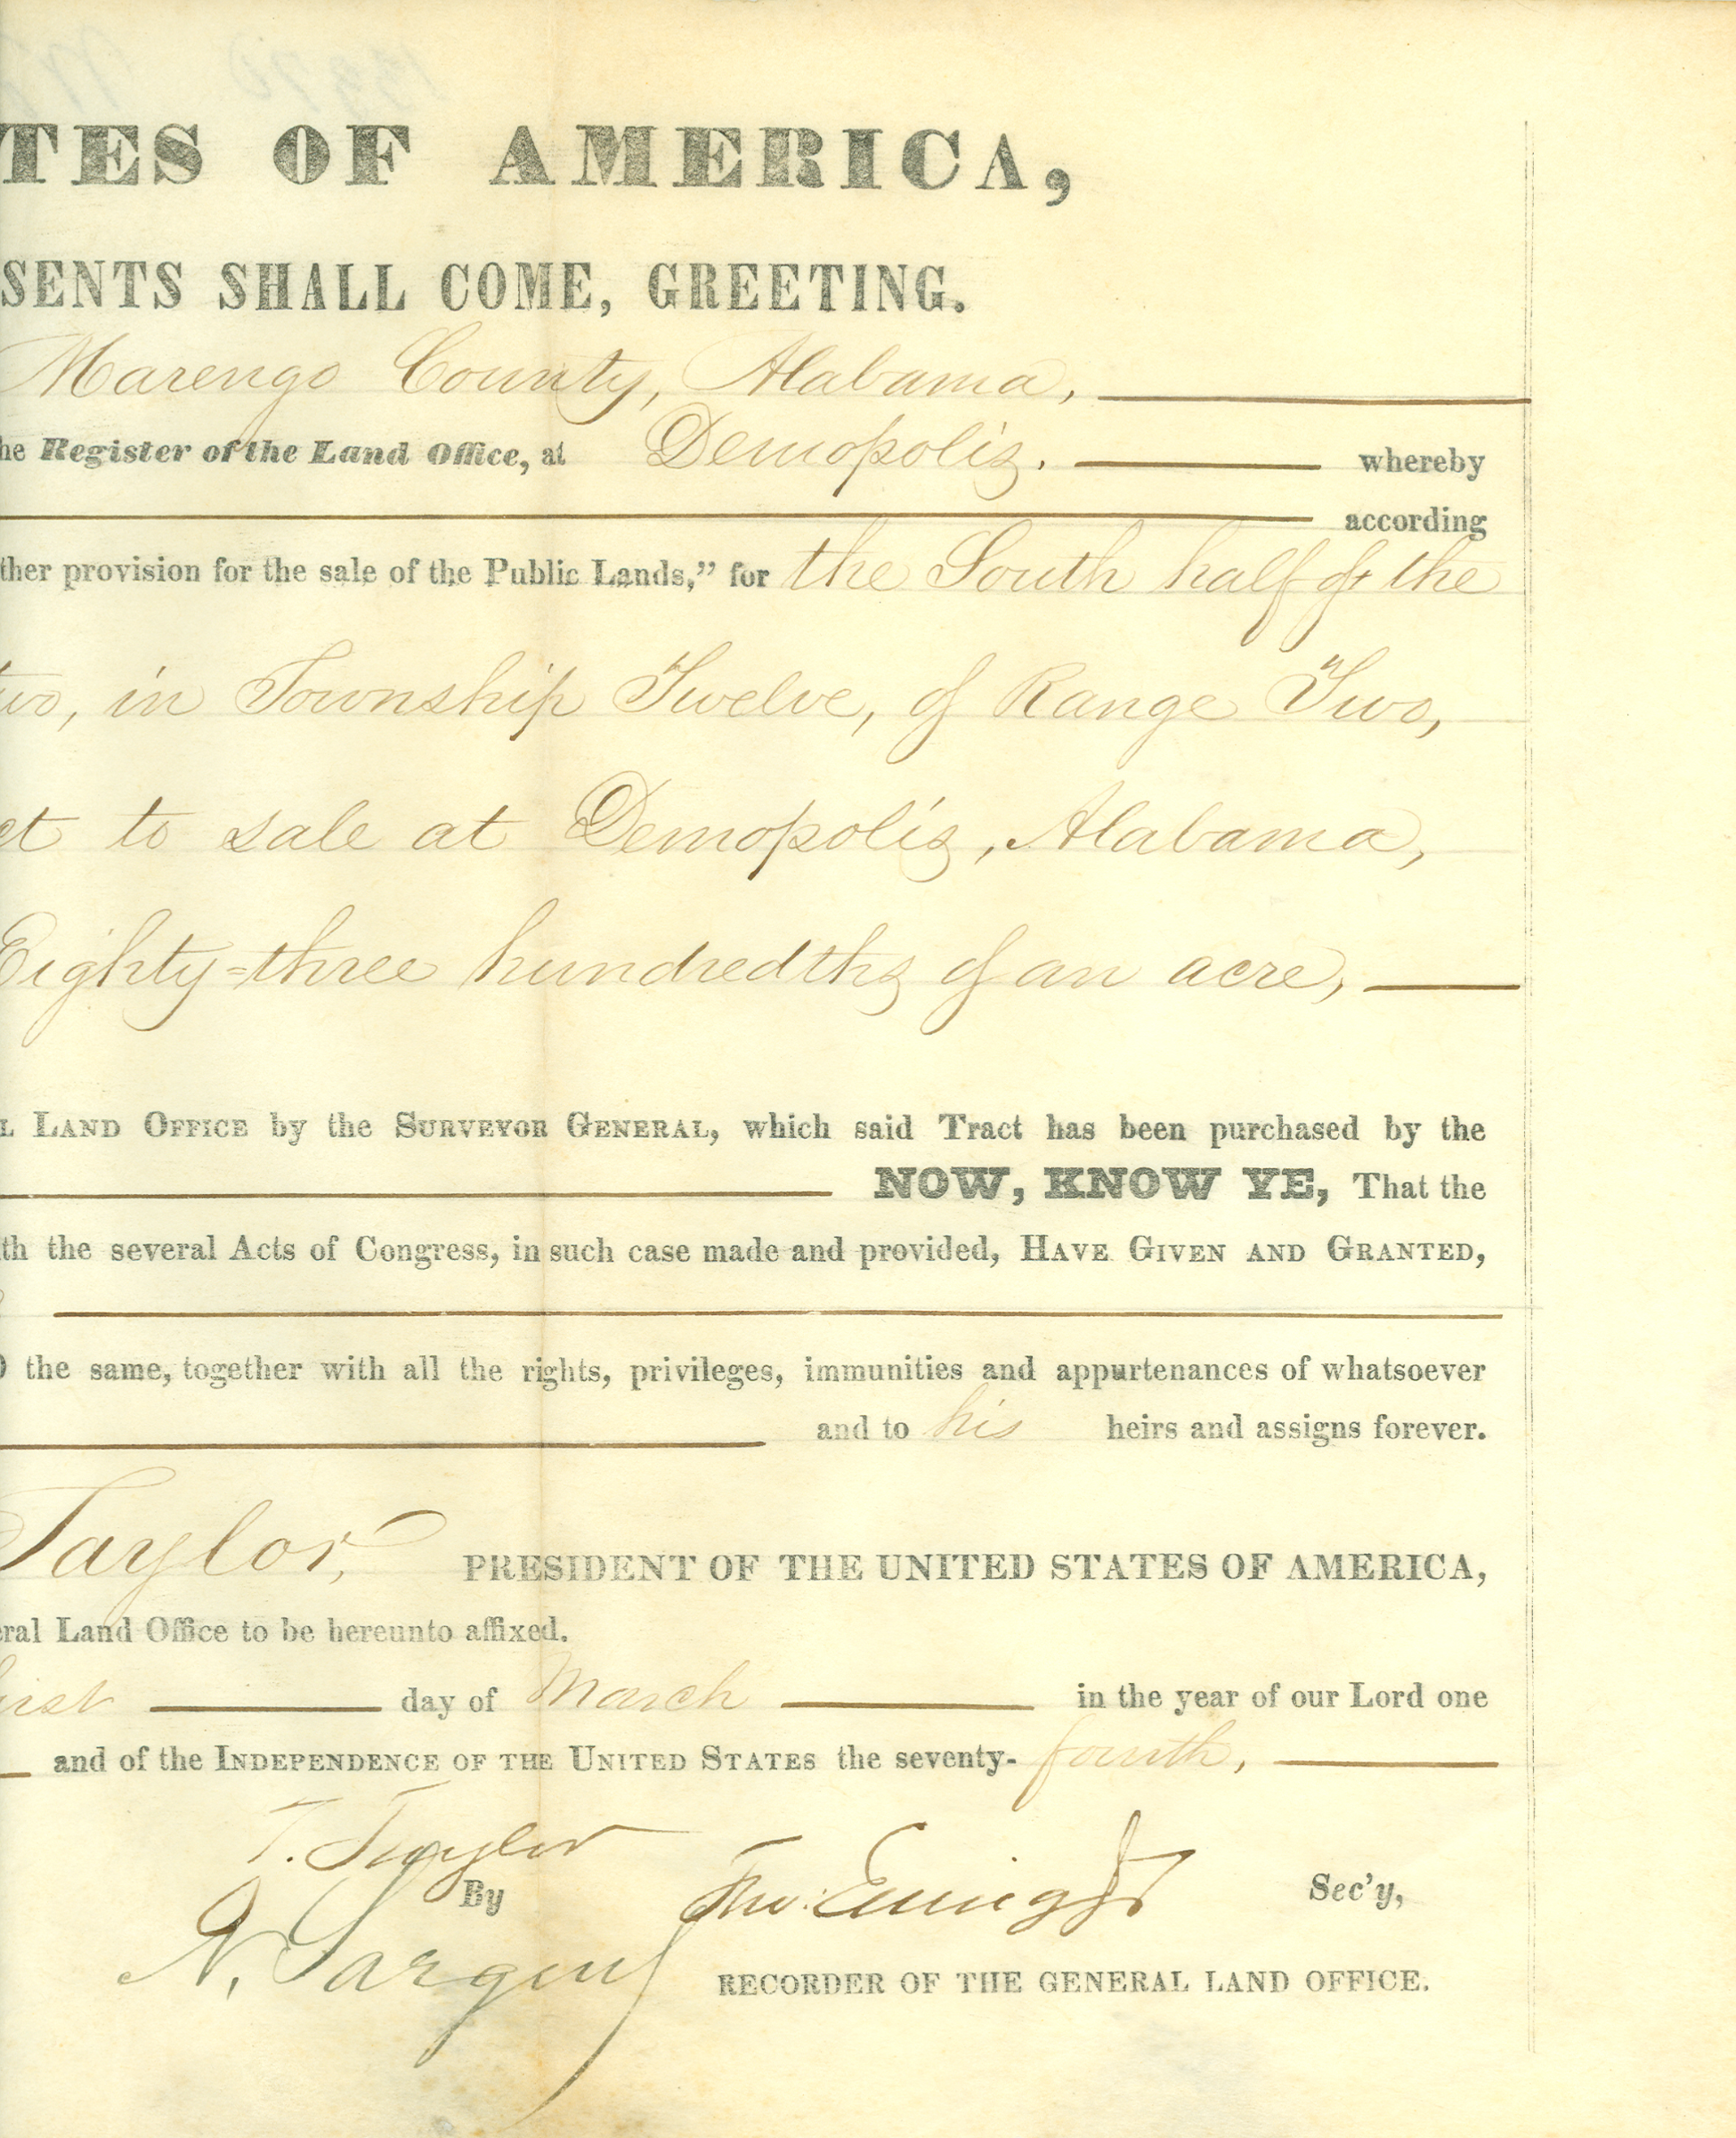 TES OF AMERICA,
SENTS SHALL COME, GREETING.
Marengo County, Alabama,
he Register of the Land Office, at Demopolis. whereby
according
ther provision for the sale of the Public Lands,” for the South half of the
two, in Township Twelve, of Range Two,
ct to sale at Demopolis, Alabama,
Eighty=three hundredths of an acre,
L LAND OFFICE by the SURVEYOR GENERAL, which said Tract has been purchased by the
NOW, KNOW YE, That the
th the several Acts of Congress, in such case made and provided, HAVE GIVEN AND GRANTED,
the same, together with all the rights, privileges, immunities and appurtenances of whatsoever
and to his heirs and assigns forever.
Taylor, PRESIDENT OF THE UNITED STATES OF AMERICA,
eral Land Office to be hereunto affixed.
irst day of March in the year of our Lord one
and of the INDEPENDENCE OF THE UNITED STATES the seventy-fourth,
Z. Taylor
By Tho: Ewing Jr Sec'y,
N. Sargent
RECORDER OF THE GENERAL LAND OFFICE.